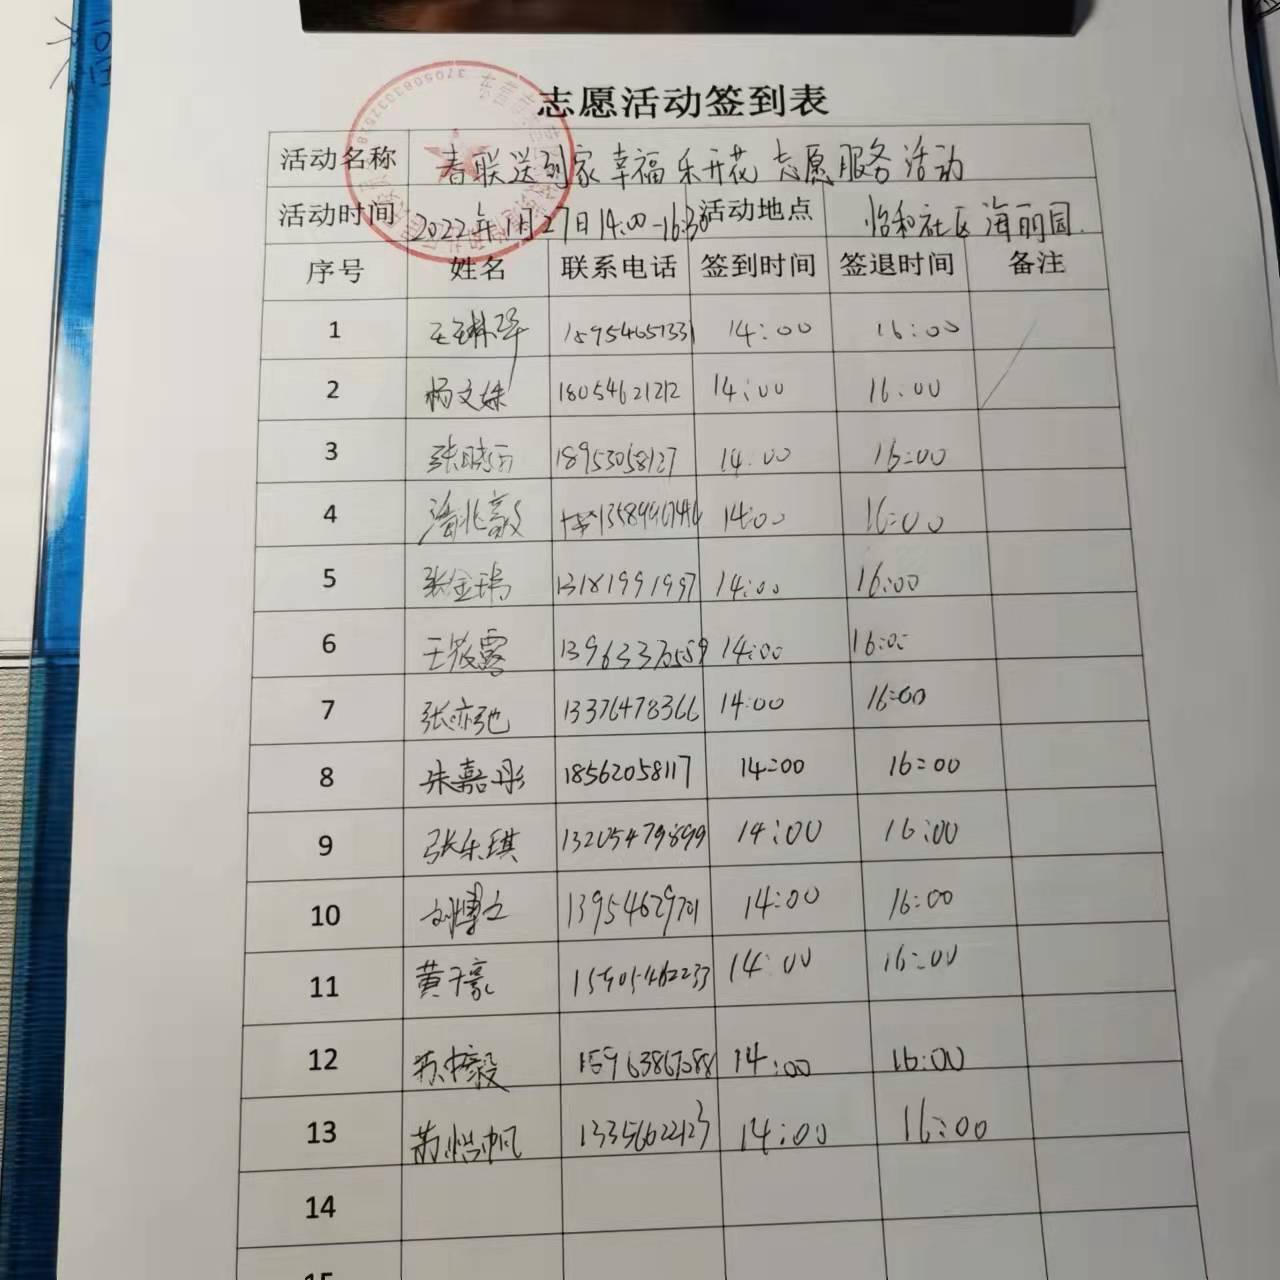 志愿活动签到表
活动名称 春联送到家幸福乐开花志愿服务活动
活动时间 2022年1月27日14:00-16:30 活动地点 怡和社区海丽园
序号 姓名 联系电话 签到时间 签退时间 备注
1 14:00 16:00
2 杨文姝 18054621212 14:00 16:00
3 18953058127 14:00 16:00
4 14:00 16:00
5 张金瑞 13181991997 14:00 16:00
6 13963370559 14:00 16:00
7 张亦弛 13376478366 14:00 16:00
8 朱嘉彤 18562058117 14:00 16:00
9 张乐琪 13205479899 14:00 16:00
10 刘博文 13954629701 14:00 16:00
11 黄子豪 14:00 16:00
12 14:00 16:00
13 13356622123 14:00 16:00
14
15